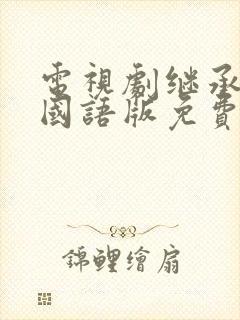 電視劇继承
國語版免費
錦鲤繪扇